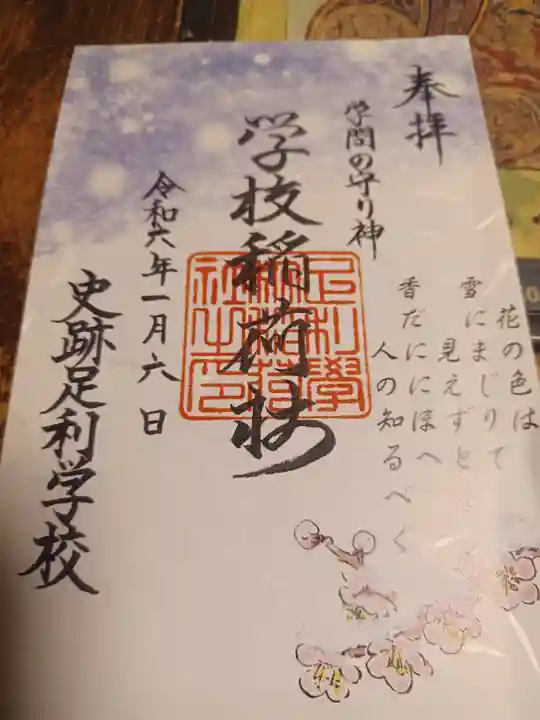 奉拝
花の色は
雪にまじりて
見えずと
香だににほへ
人の知るべく
学問の守り神
学校稲荷社
令和六年一月六日
史跡足利学校